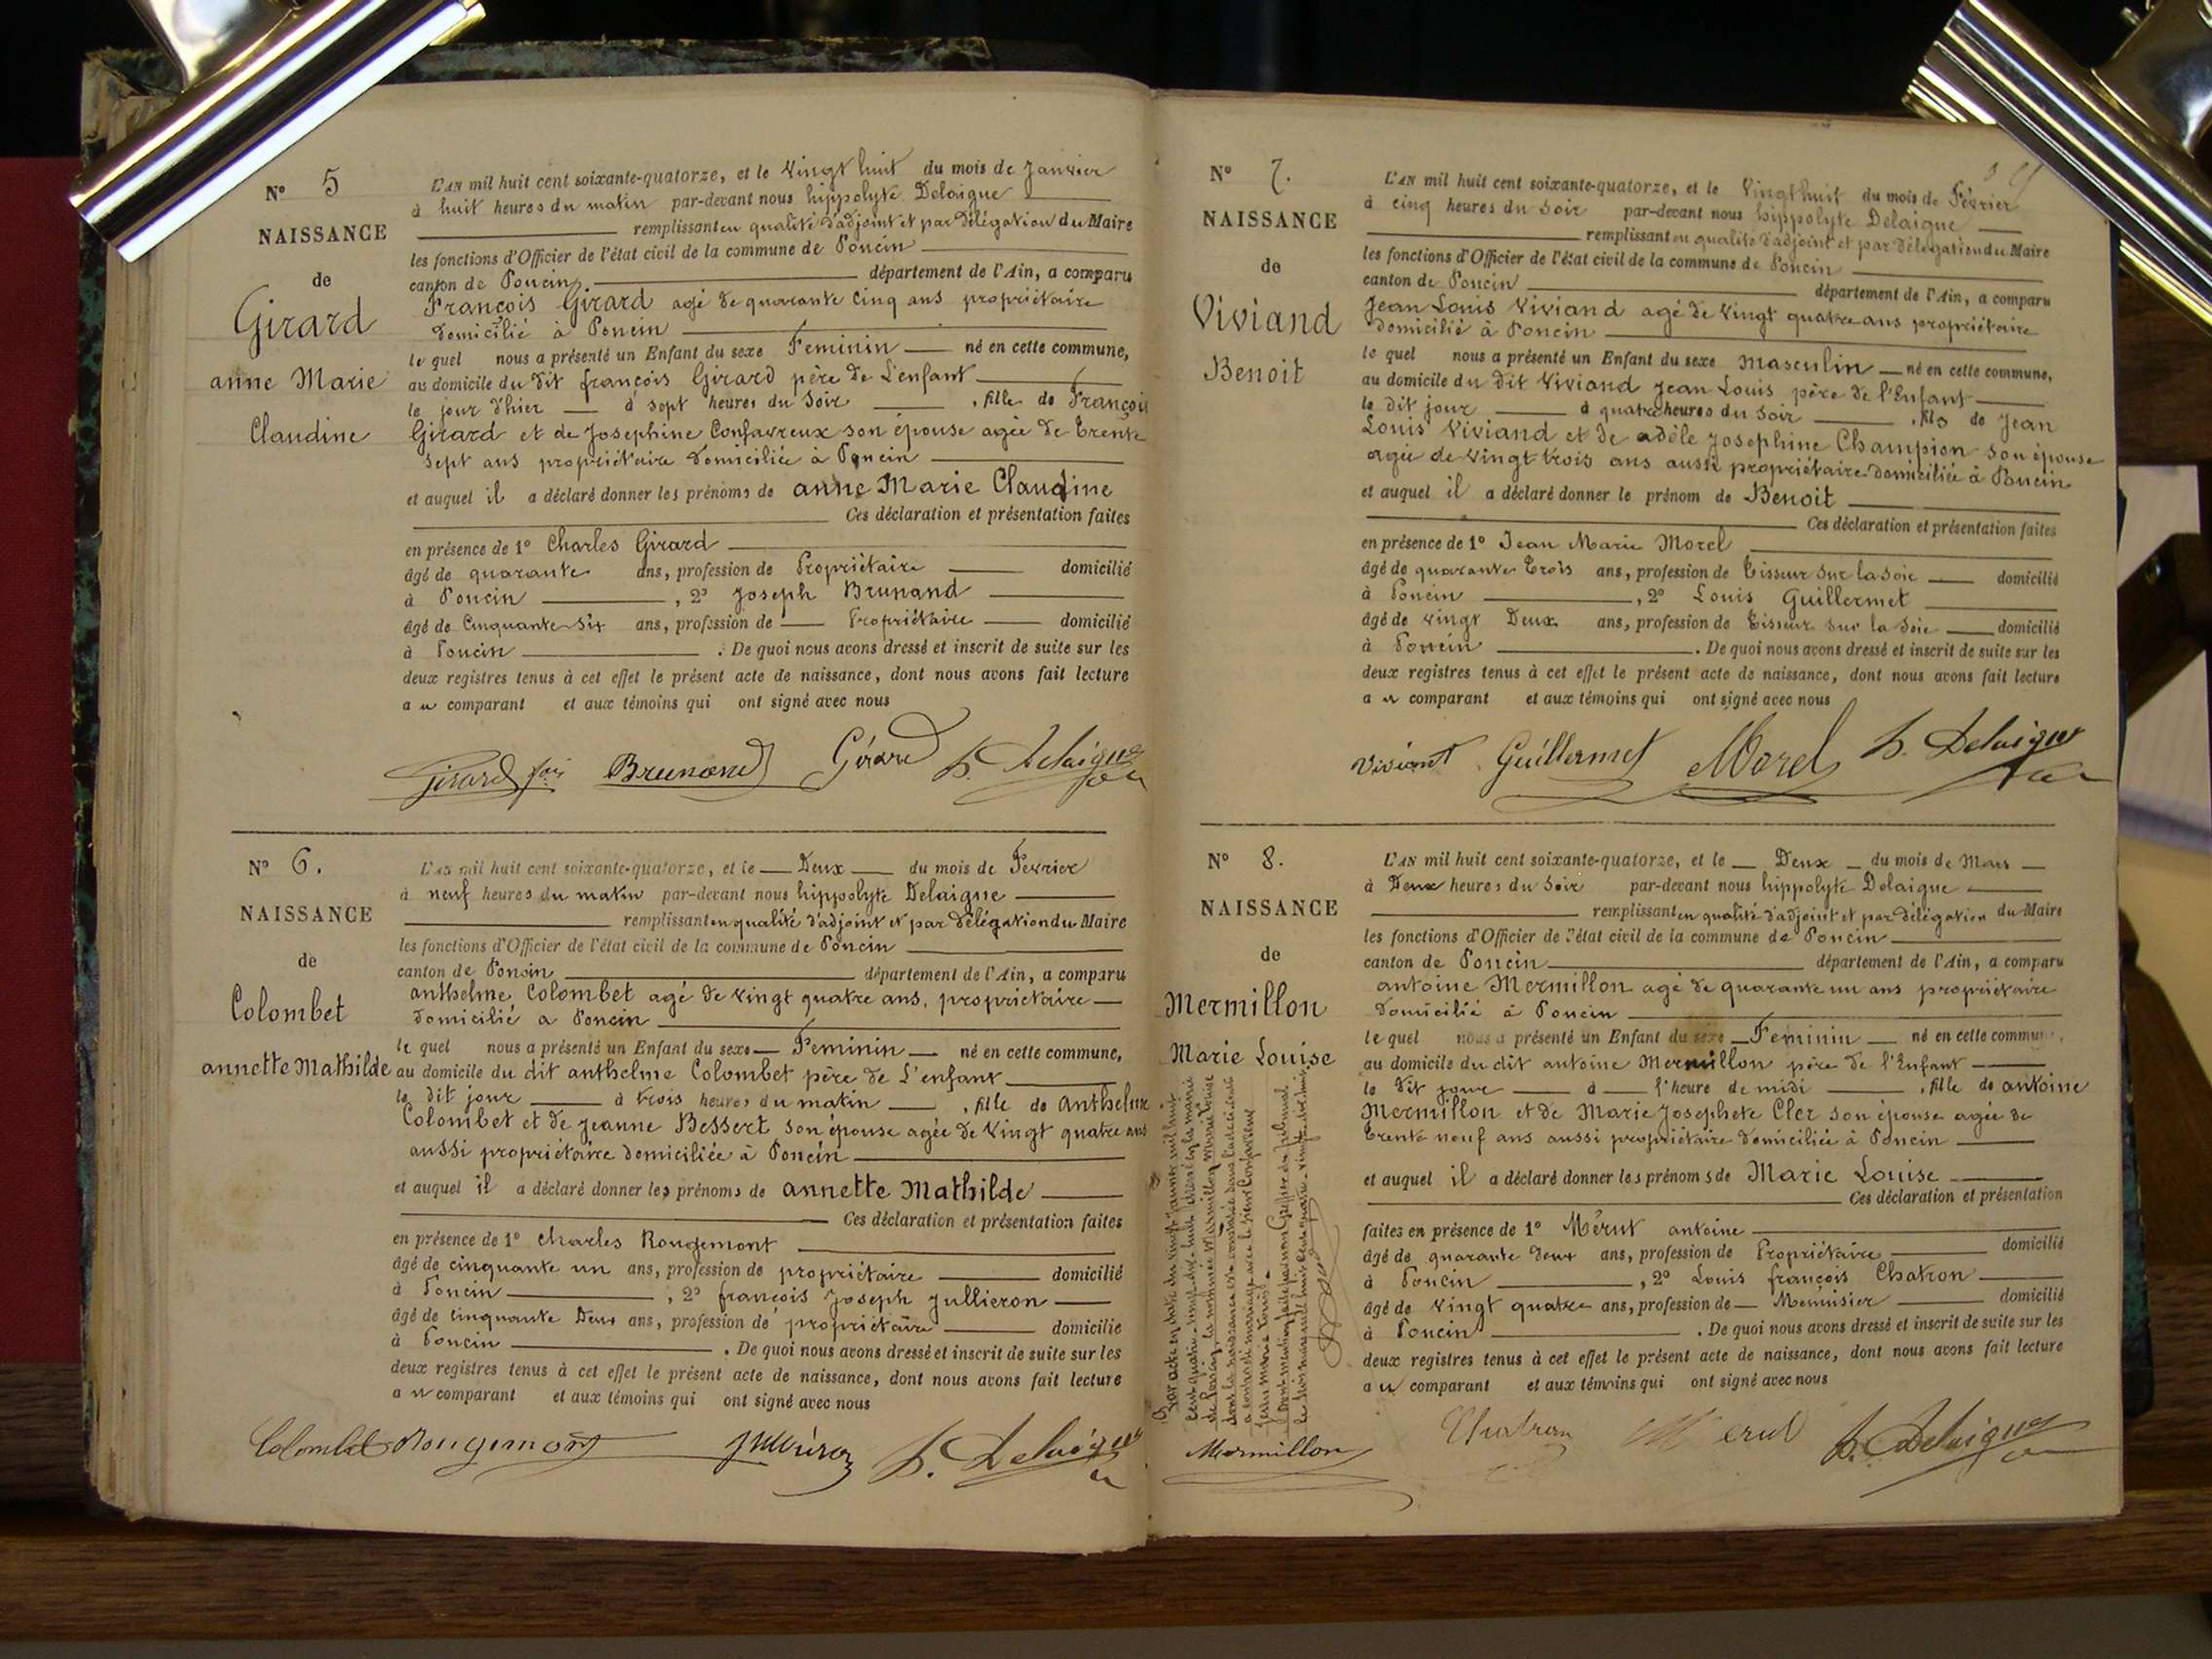 N° 5
NAISSANCE
de
Girard
anne Marie
Claudine
L'AN mil huit cent soixante-quatorze, et le Vingt huit du mois de Janvier
à huit heures du matin par-devant nous hippolyte Delaigue
remplissant en qualité d'adjoint et par délégation du Maire
les fonctions d'Officier de l'état civil de la commune de Poncin
canton de Poncin département de l'Ain, a comparu
François Girard agé de quarante cinq ans propriétaire
domicilié à Poncin
le quel nous a présenté un Enfant du sexe Feminin né en cette commune,
au domicile du dit françois Girard père de L'enfant
le jour d'hier à sept heures du Soir , fille de François
Girard et de Josephine Confavreux son épouse agée de trente
sept ans propriétaire domiciliée à Poncin
et auquel il a déclaré donner les prénoms de anne Marie Claudine
Ces déclaration et présentation faites
en présence de 1° Charles Girard
âgé de quarante ans, profession de Propriétaire domicilié
à Poncin , 2° Joseph Brunand
âgé de Cinquante-six ans, profession de Propriétaire domicilié
à Poncin . De quoi nous avons dressé et inscrit de suite sur les
deux registres tenus à cet effet le présent acte de naissance, dont nous avons fait lecture
a u comparant et aux témoins qui ont signé avec nous
Girard fois Brunand Girard h. Delaigue
N° 6.
NAISSANCE
de
Colombet
annette Mathilde
L'AN mil huit cent soixante-quatorze, et le Deux du mois de Fevrier
à neuf heures du matin par-devant nous hippolyte Delaigue
remplissant en qualité d'adjoint et par délégation du Maire
les fonctions d'Officier de l'état civil de la commune de Poncin
canton de Poncin département de l'Ain, a comparu
anthelme Colombet agé de vingt quatre ans, propriétaire
domicilié a Poncin
le quel nous a présenté un Enfant du sexe Feminin né en cette commune,
au domicile du dit anthelme Colombet père de L'enfant
le dit jour à trois heures du matin , fille de Anthelme
Colombet et de Jeanne Bessert son épouse agée de Vingt quatre ans
aussi propriétaire domiciliée à Poncin
et auquel il a déclaré donner les prénoms de annette Mathilde
Ces déclaration et présentation faites
en présence de 1° Charles Rougemont
âgé de cinquante un ans, profession de propriétaire domicilié
à Poncin , 2° françois Joseph Jullieron
âgé de Cinquante Deux ans, profession de propriétaire domicilié
à Poncin . De quoi nous avons dressé et inscrit de suite sur les
deux registres tenus à cet effet le présent acte de naissance, dont nous avons fait lecture
a u comparant et aux témoins qui ont signé avec nous
Colombet Rougemont h. Delaigue
N° 7.
NAISSANCE
de
Viviand
Benoit
L'AN mil huit cent soixante-quatorze, et le Vingt huit du mois de Février
à cinq heures du Soir par-devant nous hippolyte Delaigue
remplissant en qualité d'adjoint et par délégation du Maire
les fonctions d'Officier de l'état civil de la commune de Poncin
canton de Poncin département de l'Ain, a comparu
Jean Louis Viviand agé de Vingt quatre ans propriétaire
domicilié à Poncin
le quel nous a présenté un Enfant du sexe Masculin né en cette commune,
au domicile du dit Viviand Jean Louis père de l'Enfant
le dit jour à quatre heures du Soir , fils de Jean
Louis Viviand et de adèle Josephine Champion son épouse
agée de vingt trois ans aussi propriétaire domiciliée à Poncin
et auquel il a déclaré donner le prénom de Benoit
Ces déclaration et présentation faites
en présence de 1° Jean Marie Morel
âgé de quarante trois ans, profession de tisseur sur la soie domicilié
à Poncin , 2° Louis Guillermet
âgé de vingt Deux ans, profession de tisseur sur la soie domicilié
à Poncin . De quoi nous avons dressé et inscrit de suite sur les
deux registres tenus à cet effet le présent acte de naissance, dont nous avons fait lecture
a u comparant et aux témoins qui ont signé avec nous
Viviant Guillermet Morel h. Delaigue
N° 8.
NAISSANCE
de
Mermillon
Marie Louise
L'AN mil huit cent soixante-quatorze, et le Deux du mois de Mars
à Deux heures du Soir par-devant nous hippolyte Delaigue
remplissant en qualité d'adjoint et par délégation du Maire
les fonctions d'Officier de l'état civil de la commune de Poncin
canton de Poncin département de l'Ain, a comparu
antoine Mermillon agé de quarante un ans propriétaire
domicilié à Poncin
le quel nous a présenté un Enfant du sexe Feminin né en cette commune,
au domicile du dit antoine Mermillon père de l'Enfant
le dit jour à l'heure de midi , fille de antoine
Mermillon et de Marie Josephete Cler son épouse agée de
trente neuf ans aussi propriétaire domiciliée à Poncin
et auquel il a déclaré donner les prénoms de Marie Louise
Ces déclaration et présentation
faites en présence de 1° Mérut antoine
âgé de quarante deux ans, profession de Propriétaire domicilié
à Poncin , 2° Louis françois Chatron
âgé de Vingt quatre ans, profession de Menuisier domicilié
à Poncin . De quoi nous avons dressé et inscrit de suite sur les
deux registres tenus à cet effet le présent acte de naissance, dont nous avons fait lecture
a u comparant et aux témoins qui ont signé avec nous
Mermillon Chatron Merut h. Delaigue